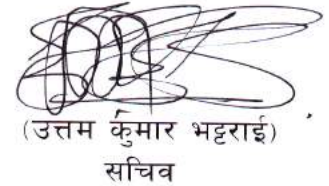 (उत्तम कुमार भट्टराई)
सचिव